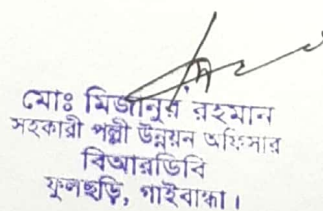 মোঃ মিজানুর রহমান
সহকারী পল্লী উন্নয়ন অফিসার
বিআরডিবি
ফুলছড়ি, গাইবান্ধা।